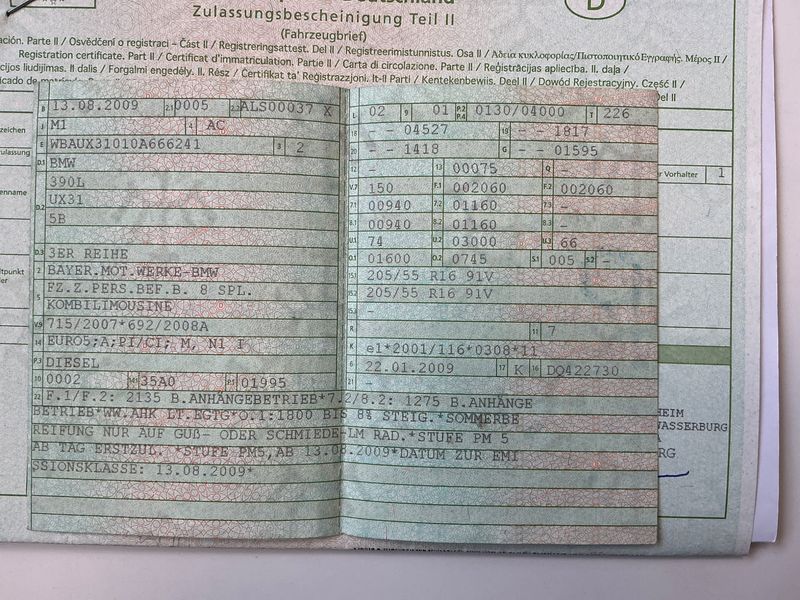 Zulassungsbescheinigung Teil II
(Fahrzeugbrief)
D
Parte II / Osvědčení o registraci – Část II / Registreringsattest. Del II / Registreerimistunnistus. Osa II / Άδεια κυκλοφορίας/Πιστοποιητικό Εγγραφής. Μέρος II /
Registration certificate. Part II / Certificat d'immatriculation. Partie II / Carta di circolazione. Parte II / Reģistrācijas apliecība. II. daļa /
liudijimas. II dalis / Forgalmi engedély. II. Rész / Ċertifikat ta' Reġistrazzjoni. It-II Parti / Kentekenbewijs. Deel II / Dowód Rejestracyjny. Część II /
Del II
B 13.08.2009 2.1 0005 2.2 ALS00037 X
J M1 4 AC
E WBAUX31010A666241 3 2
D.1 BMW
390L
D.2 UX31
5B
D.3 3ER REIHE
2 BAYER.MOT.WERKE-BMW
5 FZ.Z.PERS.BEF.B. 8 SPL.
KOMBILIMOUSINE
V.9 715/2007*692/2008A
14 EURO5;A;PI/CI; M, N1 I
P.3 DIESEL
10 0002 14.1 35A0 P.1 01995
L 02 9 01 P.2 P.4 0130/04000 T 226
18 - - 04527 19 - - 1817
20 - - 1418 G - - 01595
12 - 13 00075 Q -
V.7 150 F.1 002060 F.2 002060
7.1 00940 7.2 01160 7.3 -
8.1 00940 8.2 01160 8.3 -
U.1 74 U.2 03000 U.3 66
O.1 01600 O.2 0745 S.1 005 S.2 -
15.1 205/55 R16 91V
15.2 205/55 R16 91V
15.3 -
R 11 7
K e1*2001/116*0308*11
6 22.01.2009 17 K 16 DQ422730
21 -
22 F.1/F.2: 2135 B.ANHÄNGEBETRIEB*7.2/8.2: 1275 B.ANHÄNGE
BETRIEB*WW.AHK LT.EGTG*O.1:1800 BIS 8% STEIG.*SOMMERBE
REIFUNG NUR AUF GUß- ODER SCHMIEDE-LM RAD.*STUFE PM 5
AB TAG ERSTZUL. *STUFE PM5,AB 13.08.2009*DATUM ZUR EMI
SSIONSKLASSE: 13.08.2009*
zeichen
r Vorhalter 1
HEIM
WASSERBURG
RG